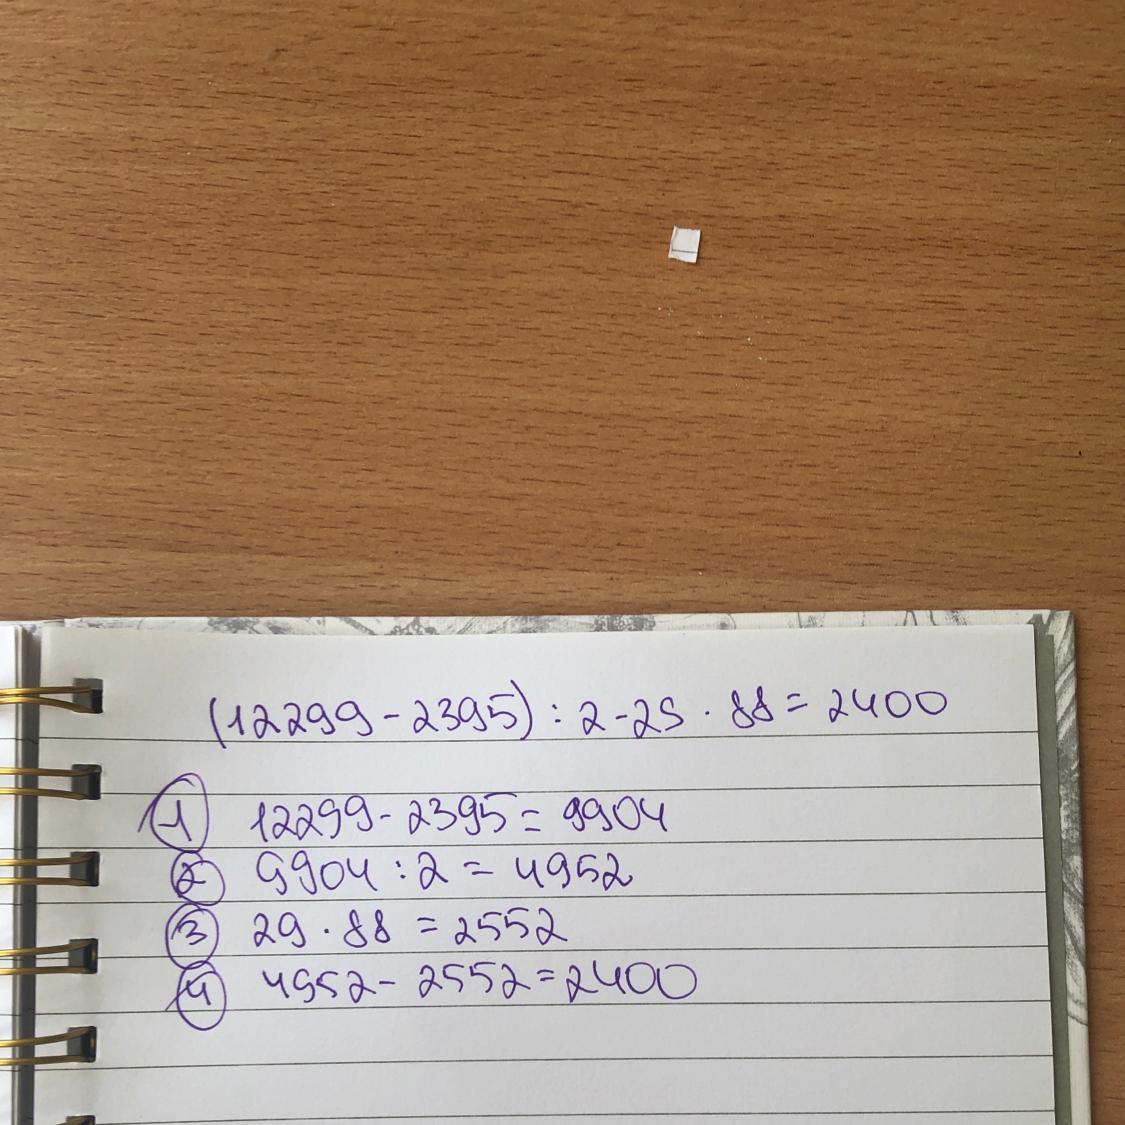 (12299-2395) : 2-29 · 88 = 2400
1 12299-2395 = 9904
2 9904 : 2 = 4952
3 29 · 88 = 2552
4 4952- 2552=2400